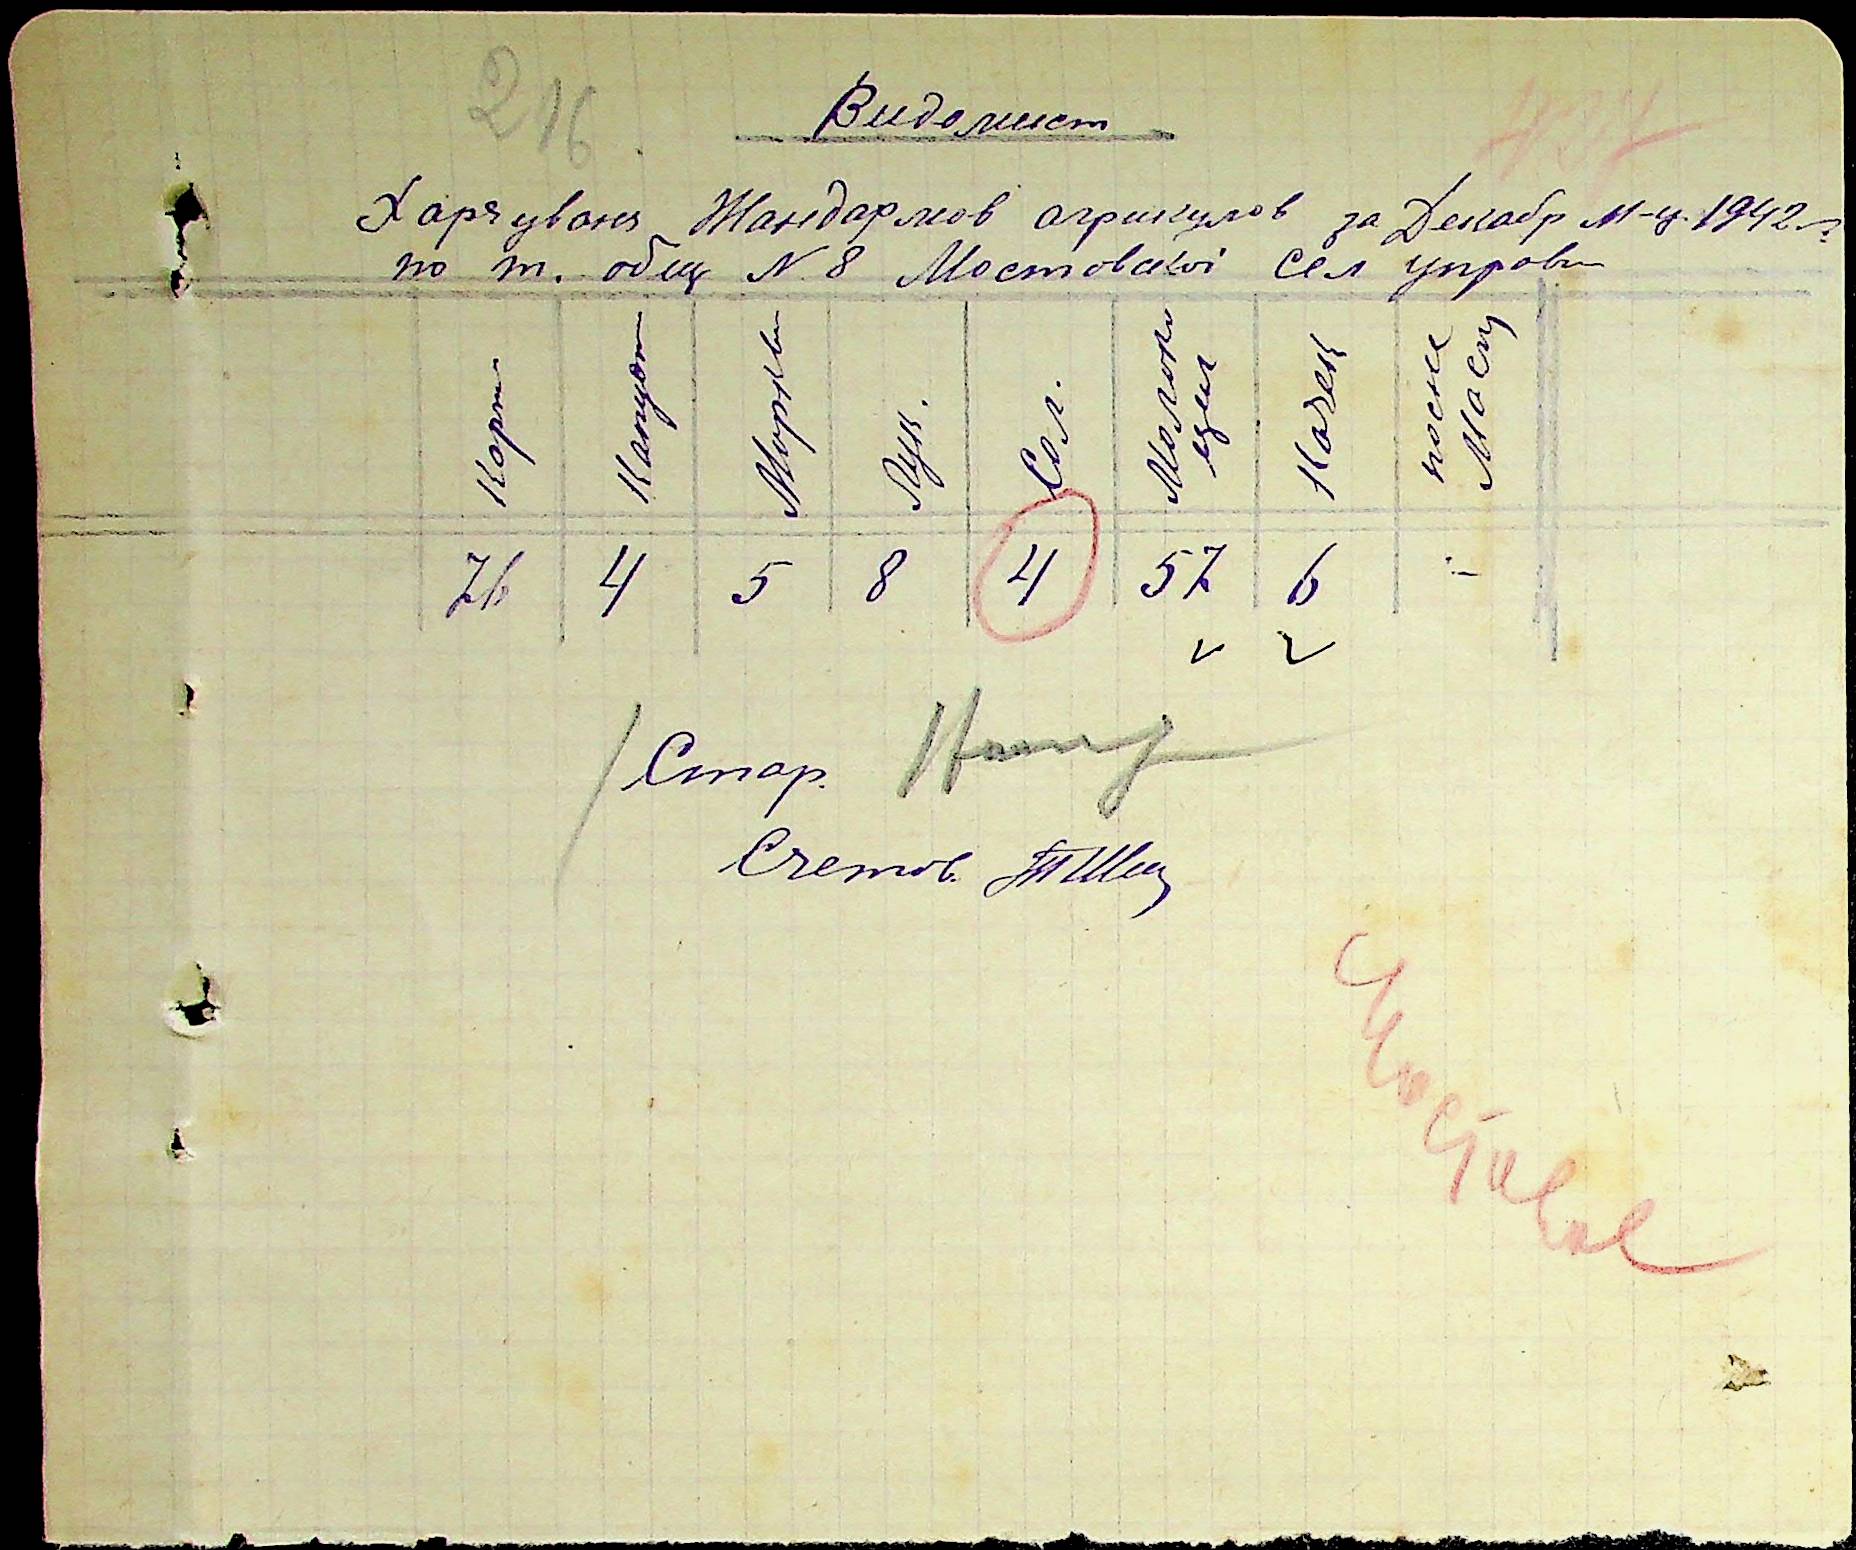 216
Видомист
Харчуваня Жандармов агрикулов за Декабр м-ц 1942 г
по т. общ N 8 Мостовскоі Сел управи
Карт. Капуст Моркви Лук. Сол. Молоко цил Качен посне Масл
76 4 5 8 4 57 6 -
Стар.
Счетов. Швец